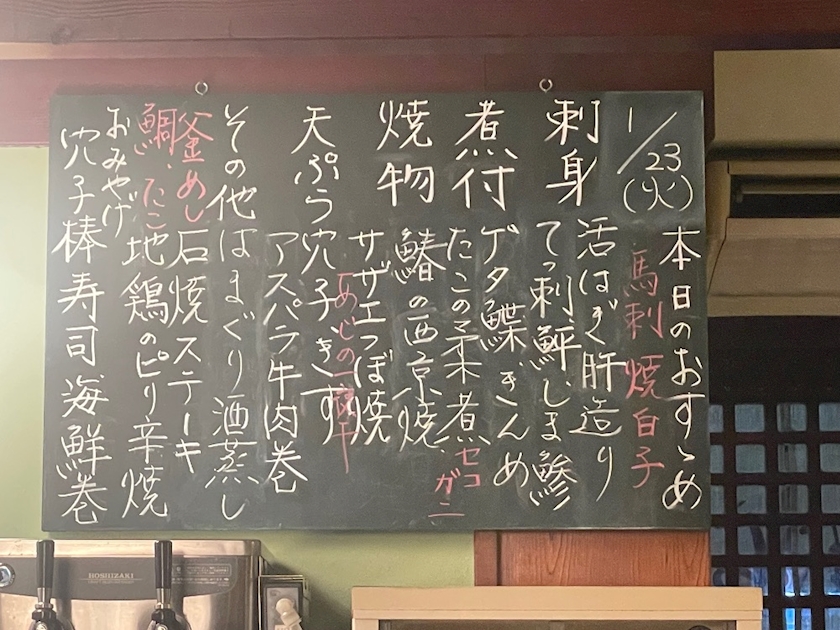 1/23(火)
本日のおすゝめ
馬刺 焼白子
刺身
活はぎ肝造り
てっ刺 鮃 しま鯵
煮付
ゲタ鰈 きんめ
たこの柔煮
セコガニ
焼物
鰆の西京焼
サザエつぼ焼
あじの一夜干
天ぷら
穴子 きす
アスパラ牛肉巻
その他
はまぐり酒蒸し
石焼ステーキ
地鶏のピリ辛焼
釜めし
鯛、たこ
おみやげ
穴子棒寿司 海鮮巻
HOSHIZAKI